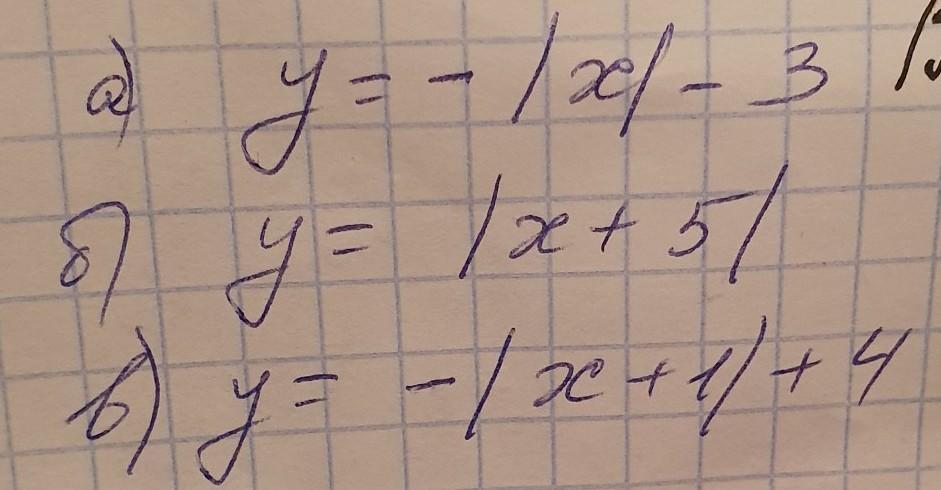 а) y = - |x| - 3
б) y = |x + 5|
в) y = - |x + 1| + 4